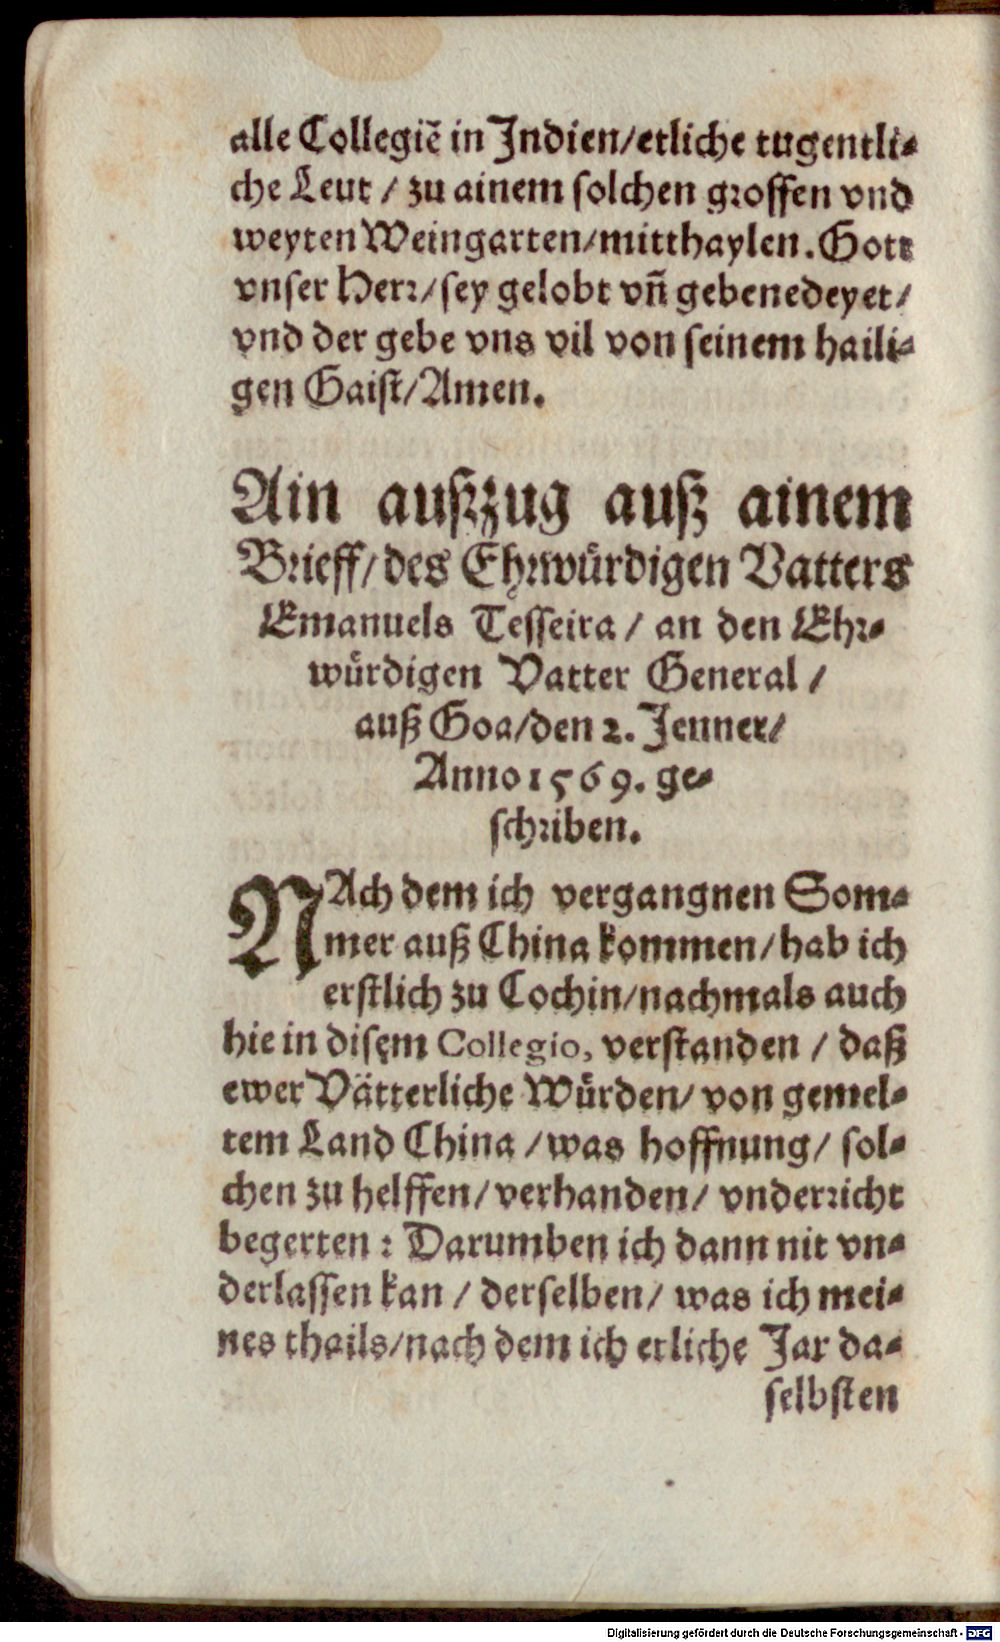 alle Collegiē in Indien/etliche tugentli-
che Leut / zu ainem solchen grossen vnd
weyten Weingarten/mitthaylen. Gott
vnser Herr/sey gelobt vñ gebenedeyet/
vnd der gebe vns vil von seinem haili-
gen Gaist/Amen.
Ain außzug auß ainem
Brieff/des Ehrwürdigen Vatters
Emanuels Tesseira/ an den Ehr-
würdigen Vatter General /
auß Goa/den 2. Jenner/
Anno 1569. ge-
schriben.
NAch dem ich vergangnen Som-
mer auß China kommen/hab ich
erstlich zu Cochin/nachmals auch
hie in disem Collegio, verstanden / daß
ewer Vätterliche Würden/ von gemel-
tem Land China /was hoffnung/ sol-
chen zu helffen/verhanden/ vnderricht
begerten : Darumben ich dann nit vn-
derlassen kan / derselben/ was ich mei-
nes thails/nach dem ich etliche Jar da-
selbsten
Digitalisierung gefördert durch die Deutsche Forschungsgemeinschaft - DFG